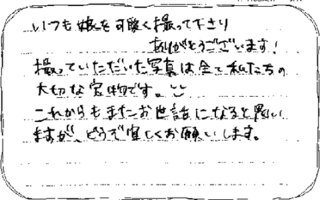 いつも娘を可愛く撮って下さり
ありがとうございます！
撮っていただいた写真は全て私たちの
大切な宝物です。
これからもまたお世話になると思い
ますが、どうぞ宜しくお願いします。